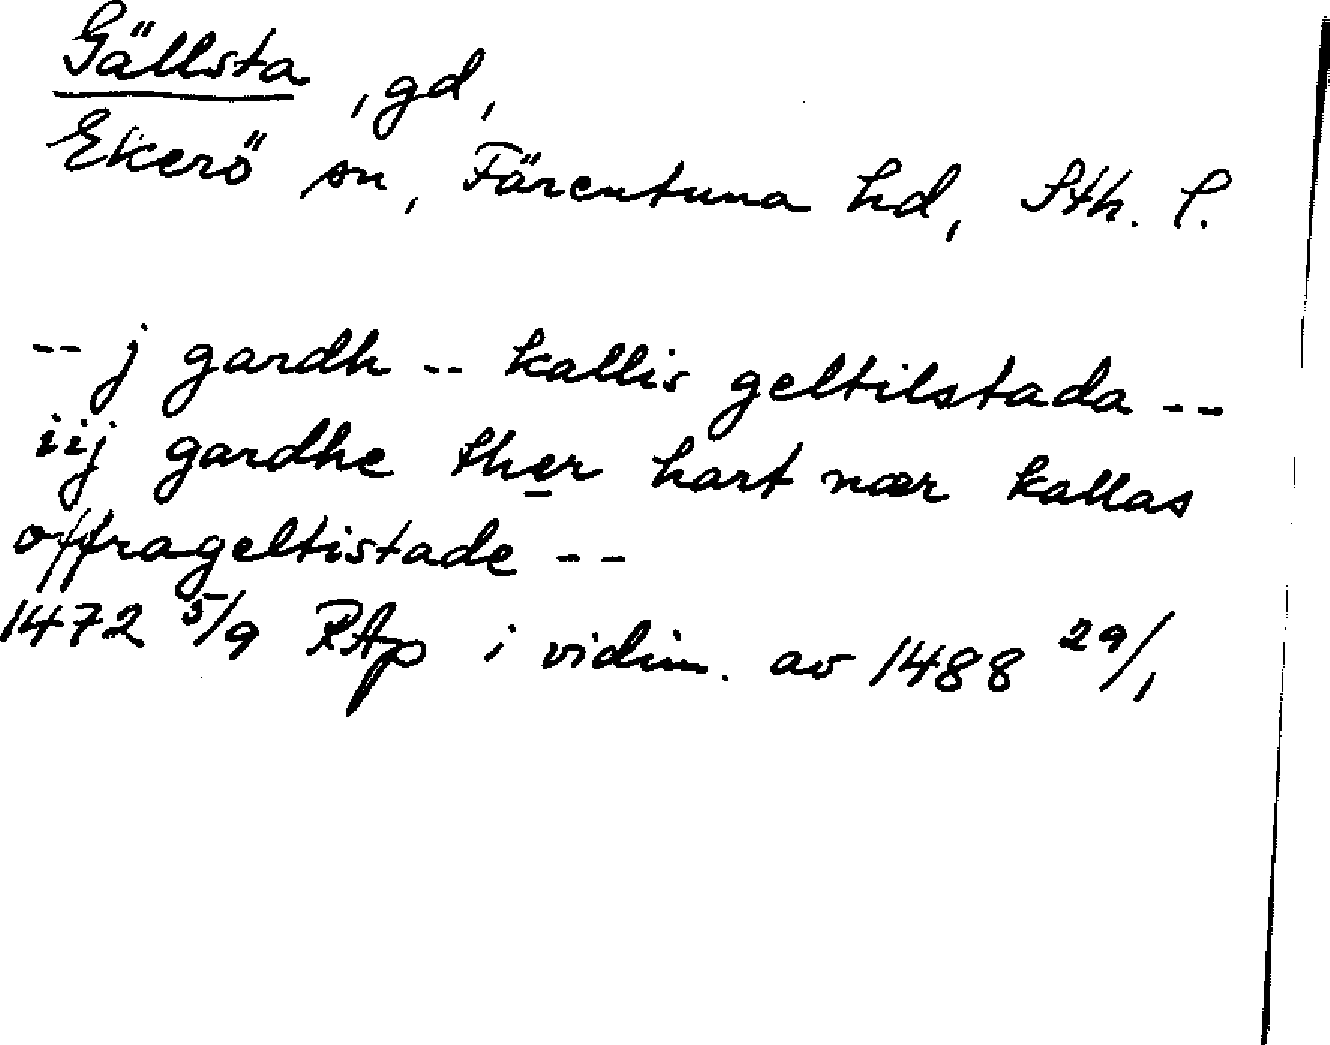 Gällsta, gd,
Ekerö sn, Färentuna hd, Sth. l.
-- j gardh -- kallis geltilstada --
iij gardhe ther hart nær kallas
offrageltistade --
1472 5/9 RAp i vidim. av 1488 29/1